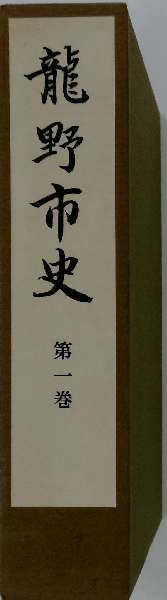 龍野市史
第一巻